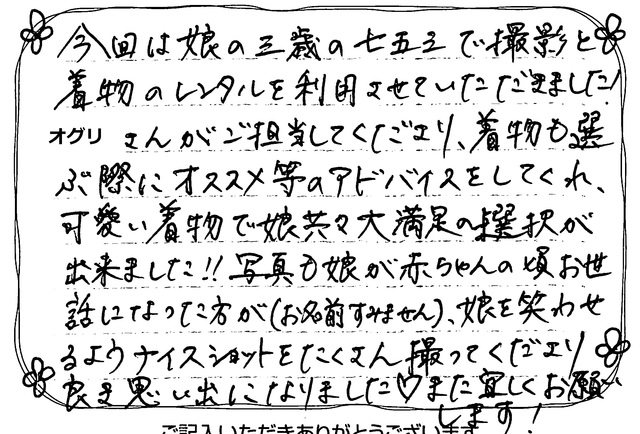 今回は娘の三歳の七五三で撮影と
着物のレンタルを利用させていただきました!
オグリさんがご担当してくださり、着物も選
ぶ際にオススメ等のアドバイスをしてくれ、
可愛い着物で娘共々大満足の選択が
出来ました!!写真も娘が赤ちゃんの頃お世
話になった方が(お名前すみません)、娘を笑わせ
るようナイスショットをたくさん撮ってくださり
良き思い出になりました♡また宜しくお願い
します!
ご記入いただきありがとうございます